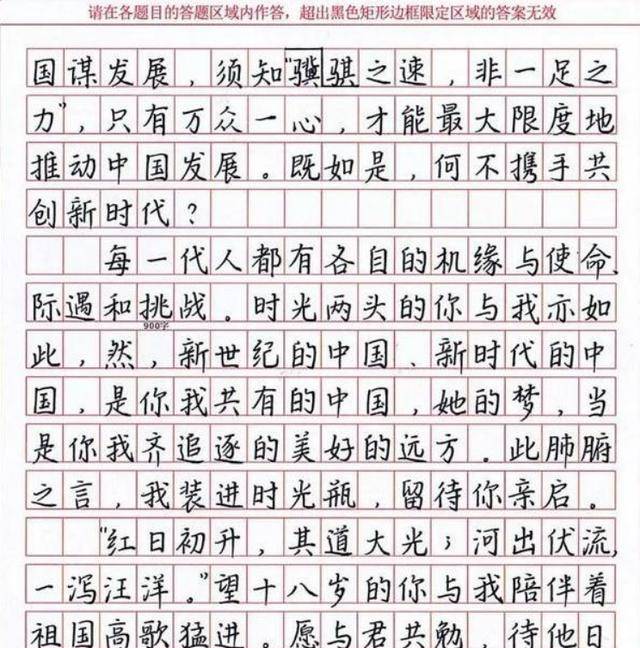 请在各题目的答题区域内作答，超出黑色矩形边框限定区域的答案无效
国谋发展，须知“骥骐之速，非一足之
力”，只有万众一心，才能最大限度地
推动中国发展。既如是，何不携手共
创新时代？
每一代人都有各自的机缘与使命、
际遇和挑战。时光两头的你与我亦如
900字
此，然，新世纪的中国、新时代的中
国，是你我共有的中国，她的梦，当
是你我齐追逐的美好的远方。此肺腑
之言，我装进时光瓶，留待你亲启。
“红日初升，其道大光；河出伏流，
一泻汪洋。”望十八岁的你与我陪伴着
祖国高歌猛进。愿与君共勉，待他日